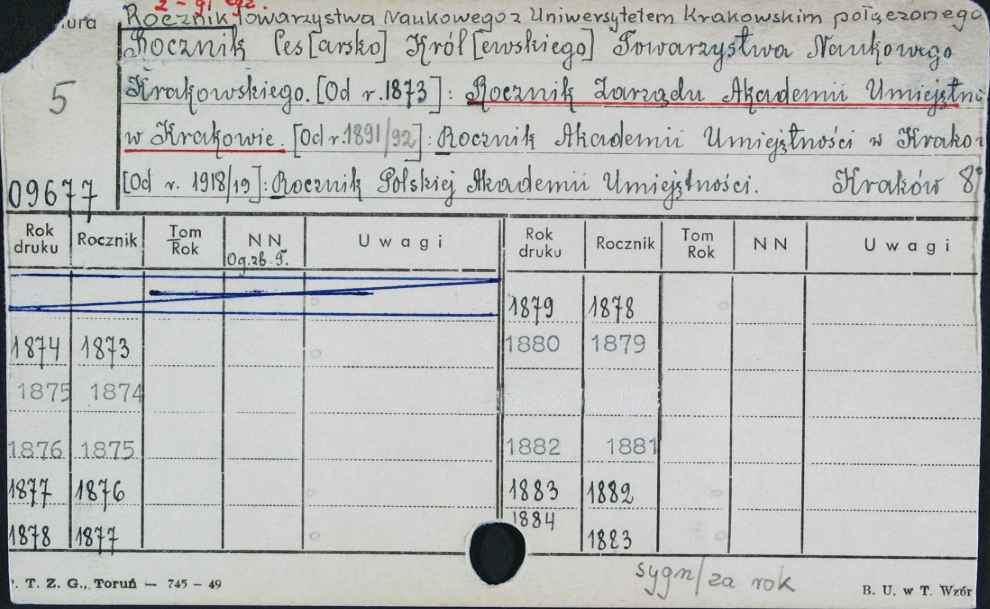 2-gi egz.
Rocznik Towarzystwa Naukowego z Uniwersytetem Krakowskim połączonego
Rocznik Ces[arsko] Król[ewskiego] Towarzystwa Naukowego
5
Krakowskiego. [Od r. 1873]: Rocznik Zarządu Akademii Umiejętno
w Krakowie. [Od r. 1891/92]: Rocznik Akademii Umiejętności w Krako
[Od r. 1918/19]: Rocznik Polskiej Akademii Umiejętności. Kraków 8°
09677
Rok druku Rocznik Tom Rok NN Og.zb. Uwagi Rok druku Rocznik Tom Rok NN Uwagi
1879 1878
1874 1873 1880 1879
1875 1874
1876 1875 1882 1881
1877 1876 1883 1882
1878 1877 1884 1883
T. Z. G., Toruń — 745 – 49
sygn/za rok
B. U. w T. Wzór